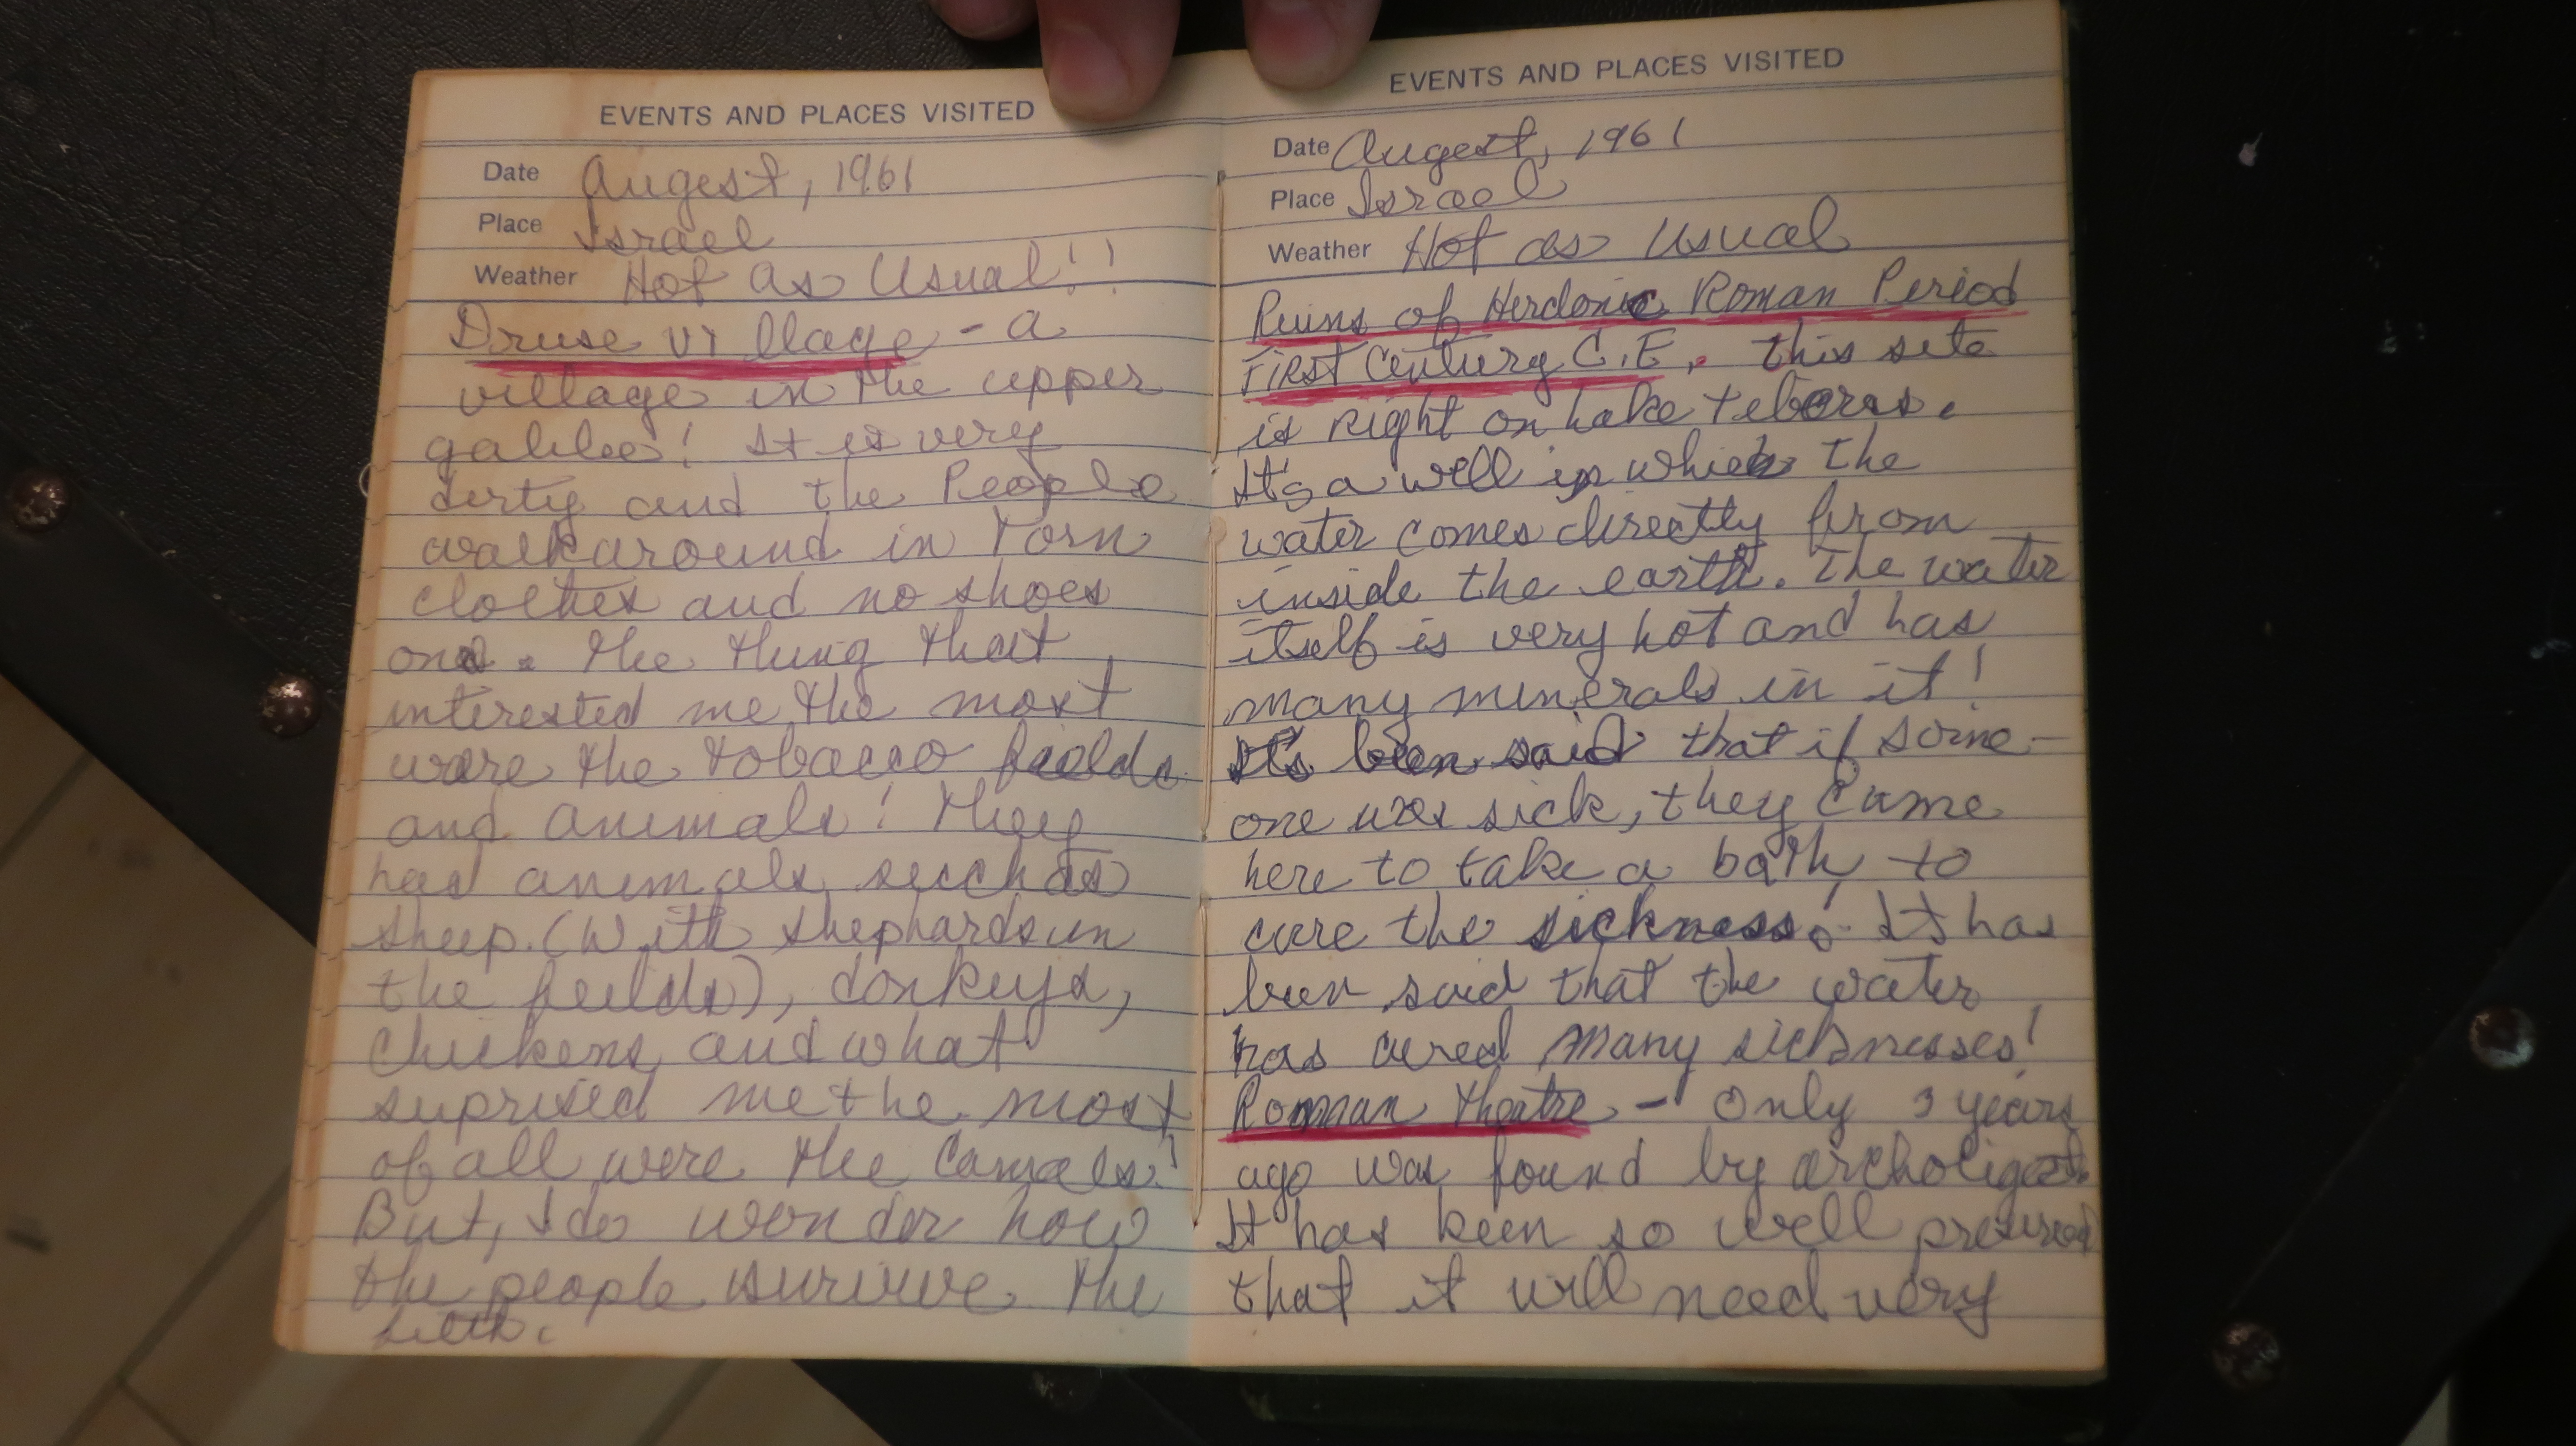 EVENTS AND PLACES VISITED
Date Augest, 1961
Place Israel
Weather Hot As Usual!!
Druse village - a
village in the upper
galilee! It is very
dirty and the People
walk around in torn
clothes and no shoes
on. The thing that
interested me the most
were the tobacco fields
and animals! They
had animals such as
sheep. (With shephards in
the feilds), donkeys,
chickens, and what
suprised me the most
of all were the Camels!
But, I do wonder how
the people survive the
filth.
EVENTS AND PLACES VISITED
Date Augest, 1961
Place Israel
Weather Hot as Usual
Ruins of Herdonic Roman Period
First Century C.E. this site
is right on Lake Teberas.
It's a well in which the
water comes directly from
inside the earth. The water
itself is very hot and has
many minerals in it!
It's been said that if some-
one was sick, they came
here to take a bath to
cure the sickness! It has
been said that the water
has cured many sicknesses!
Roman Theatre - Only 3 years
ago was found by archoligests.
It has been so well preserved
that it will need very